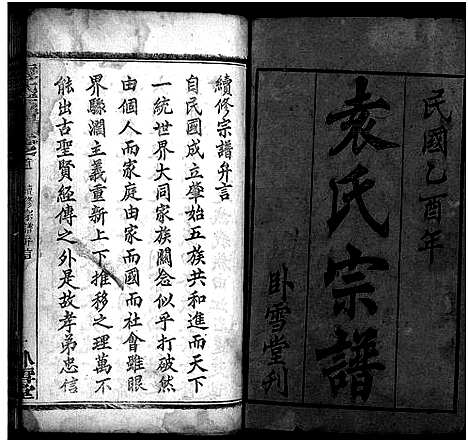 民國乙酉年
袁氏宗譜
臥雪堂刋
續修宗譜弁言
自民國成立肇始五族共和進而天下
一統世界大同家族關念似乎打破然
由個人而家庭由家而國而社會雖眼
界縣濶主義重新上下推移之理萬不
能出古聖賢經傳之外是故孝弟忠信